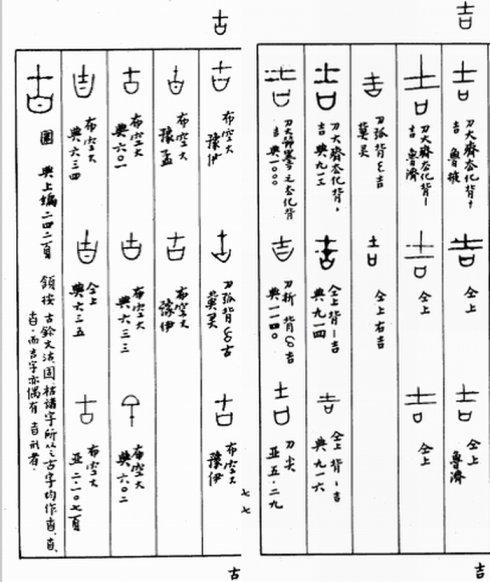 吉
刀大齊厺化背十
吉 魯
仝上
仝上
魯濟
刀大齊厺化背一
吉 魯濟
仝上
仝上
刀弧背 吉
冀灵
仝上右吉
刀大齊厺化背、
吉 典九一三
仝上背一吉
典九一四
仝上背一吉
典九一六
刀大節墨 厺化背
吉 典一〇〇〇
刀折 背 吉
典一一四〇
刀尖
亚五·二九
吉
古
布空大
豫伊
刀弧背 古
冀灵
布空大
豫伊
布空大
豫孟
布空大
豫伊
布空大
典六〇一
布空大
典六三三
布空大
典六〇二
布空大
典六三四
仝上
典六三五
布空大
亚二·一〇七頁
圜 典上編二四二頁 頷按 古鉨文 固枯諸字所从之古字均作
而吉字亦偶有 形者.
七七
古